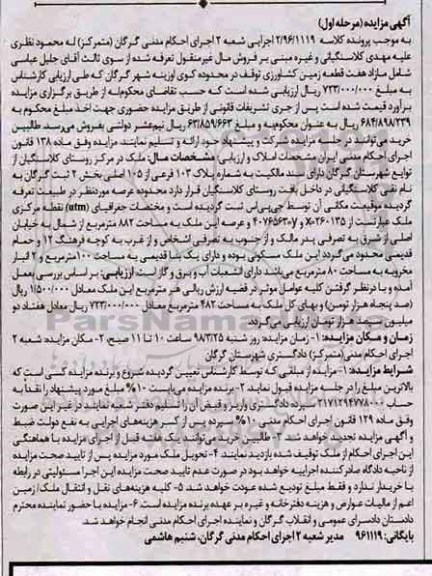 آگهی مزایده (مرحله اول)
به موجب پرونده کلاسه ۲/۹۶/۱۱۱۹ اجرایی شعبه ۲ اجرای احکام مدنی گرگان (متمرکز) له محمود نظری
علیه مهدی کلاسنگیانی و غیره مبنی بر فروش مال غیرمنقول تعرفه شده از سوی ثالث آقای جلیل عباسی
شامل مازاد هفت قطعه زمین کشاورزی توقف در محدوده کوی اوزینه شهر گرگان که طی ارزیابی کارشناس
به مبلغ ۷۳۳/۰۰۰/۰۰۰ ریال ارزیابی شده است که حسب تقاضای محکوم‌له از طریق برگزاری مزایده
برآورد قیمت شده است پس از جری تشریفات قانونی از طریق مزایده حضوری جهت اخذ مبلغ محکوم به
۶۸۴/۸۹۸/۲۳۹ ریال به عنوان محکوم‌به و مبلغ ۶۳/۸۵۹/۶۶۳ ریال نیم‌عشر دولتی بفروش می‌رسد. طالبین
خرید می‌توانند در جلسه مزایده شرکت و پیشنهاد خود ارائه و تسلیم نمایند. مزایده وفق ماده ۱۳۸ قانون
اجرای احکام مدنی ایران مشخصات املاک و ارزیابی: مشخصات مال: ملک در مرکز روستای کلاسنگیان از
توابع شهرستان گرگان دارای سند مالکیت به شماره پلاک ۱۰۳ فرعی از ۱۰۵ اصلی بخش ۲ ثبت گرگان به
نام تقی کلاسنگیانی در داخل بافت روستای کلاسنگیان قرار دارد محدوده عرصه موردنظر در طبیعت تعرفه
گردیده موقعیت مکانی آن توسط جی‌پی‌اس ثبت گردیده است و مختصات جغرافیای (utm) نقطه مرکزی
ملک عبارتست از X=۲۶۰۱۳۵ و y=۴۰۷۶۵۶۳ و عرصه این ملک به مساحت ۸۸۲ مترمربع از شمال به خیابان
اصلی از شرق به تصرفی پدر مالک و از جنوب به تصرفی اشخاص و از غرب به کوچه فرهنگ ۱۲ و حمام
قدیمی محدود می‌گردد این ملک مسکونی بوده و دارای یک بنا قدیمی به مساحت ۱۰۰ مترمربع و ۲ انبار
مخروبه به مساحت ۸۰ مترمربع می‌باشد دارای انشعابات آب و برق و گاز است. ارزیابی: بر اساس بررسی بعمل
آمده و با درنظر گرفتن کلیه عوامل موثر در قضیه ارزش ریالی هر مترمربع این ملک معادل ۱/۵۰۰/۰۰۰ ریال
(صد پنجاه هزار تومن) و بهای کل ملک به مساحت ۴۸۲ مترمربع معادل ۷۲۳/۰۰۰/۰۰۰ ریال معادل هفتاد دو
میلیون سیصد هزار تومان ارزیابی می‌گردد.
زمان و مکان مزایده: ۱- زمان مزایده: روز شنبه ۹۸/۳/۲۵ ساعت ۱۰ تا ۱۱ صبح، ۲- مکان مزایده: شعبه ۲
اجرای احکام مدنی (متمرکز) دادگستری شهرستان گرگان
شرایط مزایده: ۱- مزایده از مبلغی که توسط کارشناس تعیین گردیده شروع و برنده مزایده کسی است که
بالاترین مبلغ را در جلسه مزایده قبول نماید ۲- برنده مزایده می‌بایست ۱۰% مبلغ مورد پیشنهاد را نقداً به
حساب ۲۱۷۱۲۹۴۷۷۸۰۰۰ سپرده دادگستری واریز و قبض آن را تسلیم دفتر شعبه نمایند در غیر این صورت
وفق ماده ۱۲۹ قانون اجرای احکام مدنی ۱۰% سپرده پس از کسر هزینه‌های اجرایی به نفع دولت ضبط
و آگهی مزایده تجدید خواهد شد ۳- طالبین خرید می‌توانند یک هفته قبل از اجرای مزایده با هماهنگی
این اجرای احکام از ملک توقیف شده بازدید نمایند ۴- تحویل ملک مورد مزایده پس از تایید صحت مزایده
از ناحیه دادگاه صادرکننده اجراییه خواهد بود در صورت عدم تایید صحت مزایده این اجرا مسئولیتی در رابطه
با خریدار ندارد و فقط مبلغ تودیع شده عودت خواهد شد ۵- کلیه هزینه‌های نقل و انتقال ملک/زمین
اعم از مالیات عوارض و هزینه دفترخانه و غیره بر عهده برنده مزایده است ۶- مزایده با حضور نماینده محترم
دادستان دادسرای عمومی و انقلاب گرگان و نماینده اجرای احکام مدنی انجام خواهد شد.
بایگانی: ۹۶۱۱۱۹ مدیر شعبه ۲ اجرای احکام مدنی گرگان، شنیم هاشمی